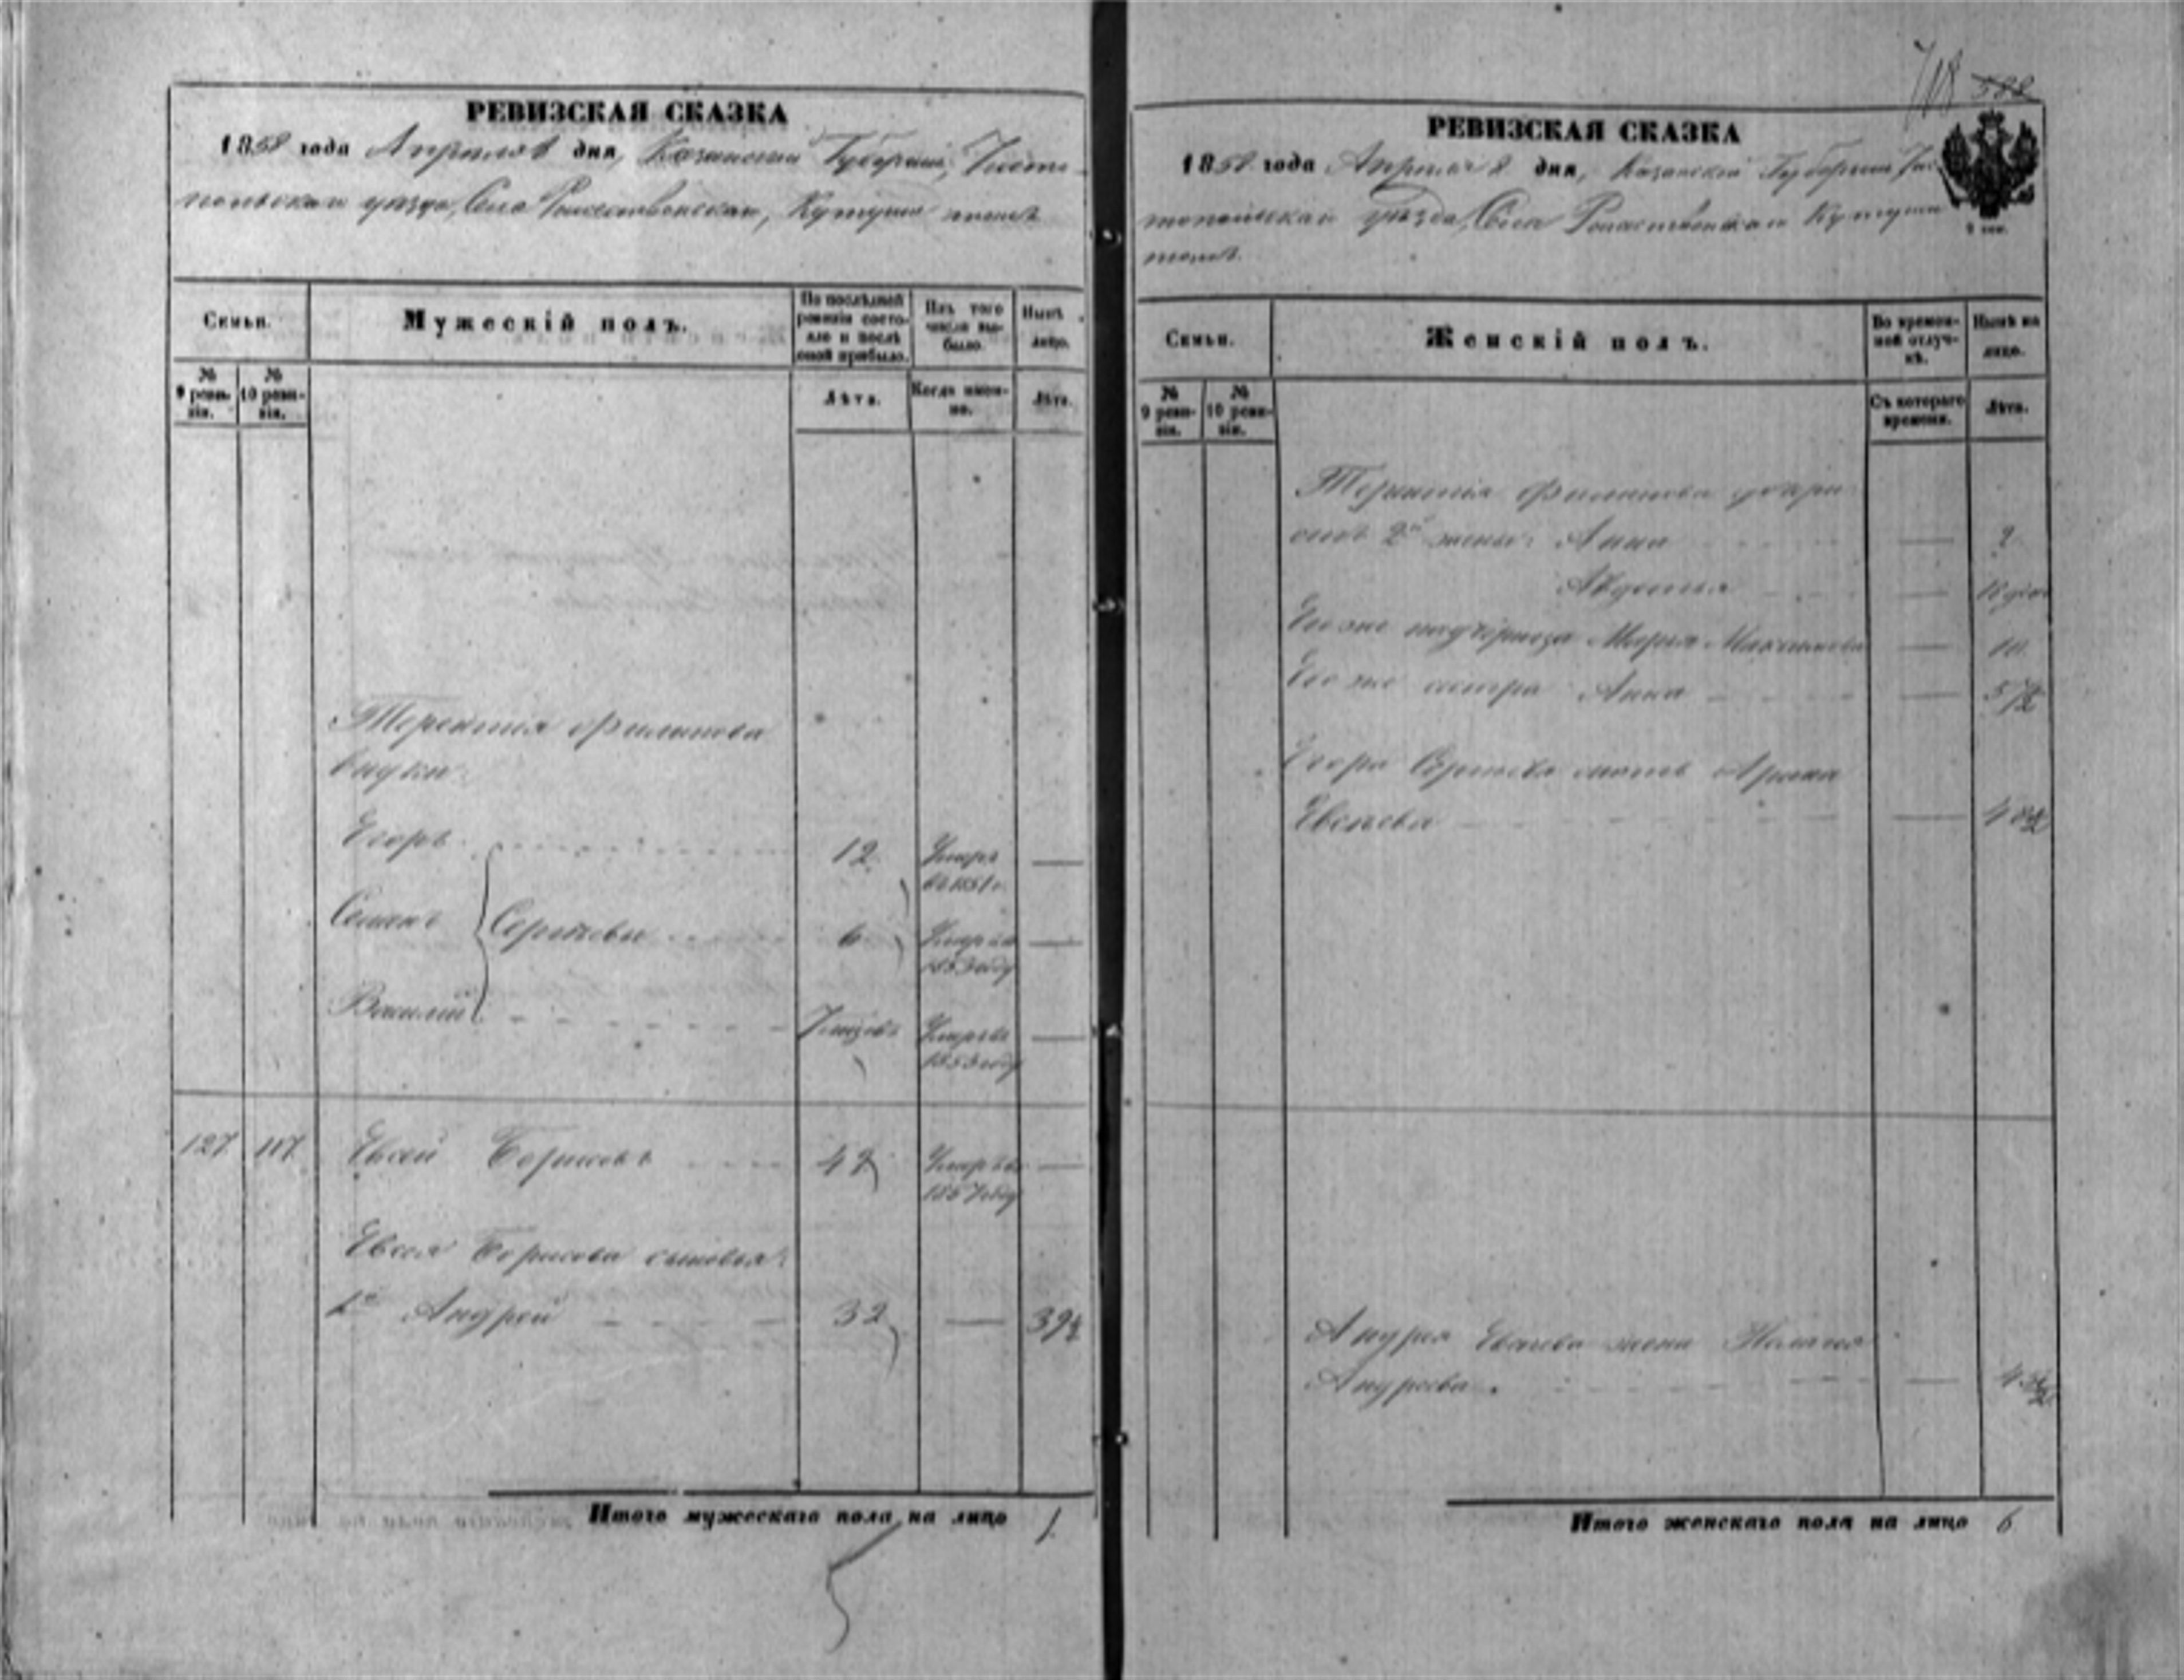 РЕВИЗСКАЯ СКАЗКА
1858 года Апреля 8 дня, Казанской Губернии, Чисто-
польскаго уезда, Села Рожественскаго, Кутуши тожъ
Семьи.
Мужескій полъ.
По послѣдней ревизіи состояло и послѣ оной прибыло.
Изъ того числа выбыло.
Нынѣ на лицо.
№ 9 ревизіи.
№ 10 ревизіи.
Лѣта.
Когда именно.
Лѣта.
Терентія Филипова
внуки:
Егоръ 12 Умеръ въ 1851 г. —
Семенъ Сергѣевы 6 Умеръ въ 1853 году —
Василій 7 мѣсяцовъ Умеръ въ 1853 году —
127 117 Евсей Борисовъ 42 Умеръ въ 1857 году —
Евсея Борисова сыновья:
1й Андрей 32 — 39½
Итого мужескаго пола на лицо 1.
718 588
РЕВИЗСКАЯ СКАЗКА
1858 года Апреля 8 дня, Казанской Губернии Чис-
топольскаго уѣзда, Села Рожественскаго Кутуши
тожъ.
Семьи.
Женскій полъ.
Во временной отлучкѣ.
Нынѣ на лицо.
№ 9 ревизіи.
№ 10 ревизіи.
Съ котораго времени.
Лѣта.
Терентія Филипова дочери
отъ 2й жены: Анна —
Авдотья —
Его же падчерица Марья Максимова — 10.
Его же сестра Анна — 57½
Егора Сергѣева мать Арина
Евсеева — 40½
Андрея Евсеева жена Пелагея
Андреева —
Итого женскаго пола на лицо 6